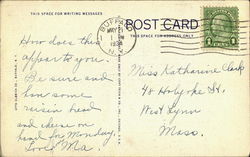 THIS SPACE FOR WRITING MESSAGES
POST CARD
THIS SPACE FOR ADDRESS ONLY
BUFFALO
MAY 21
N.Y.
1
How does this
appear to you.
Be sure and
have some
raisin bread
and cheese on
hand for Monday.
Love Ma.
Miss Katharine Clark
48 Holyoke St.
West Lynn
Mass.